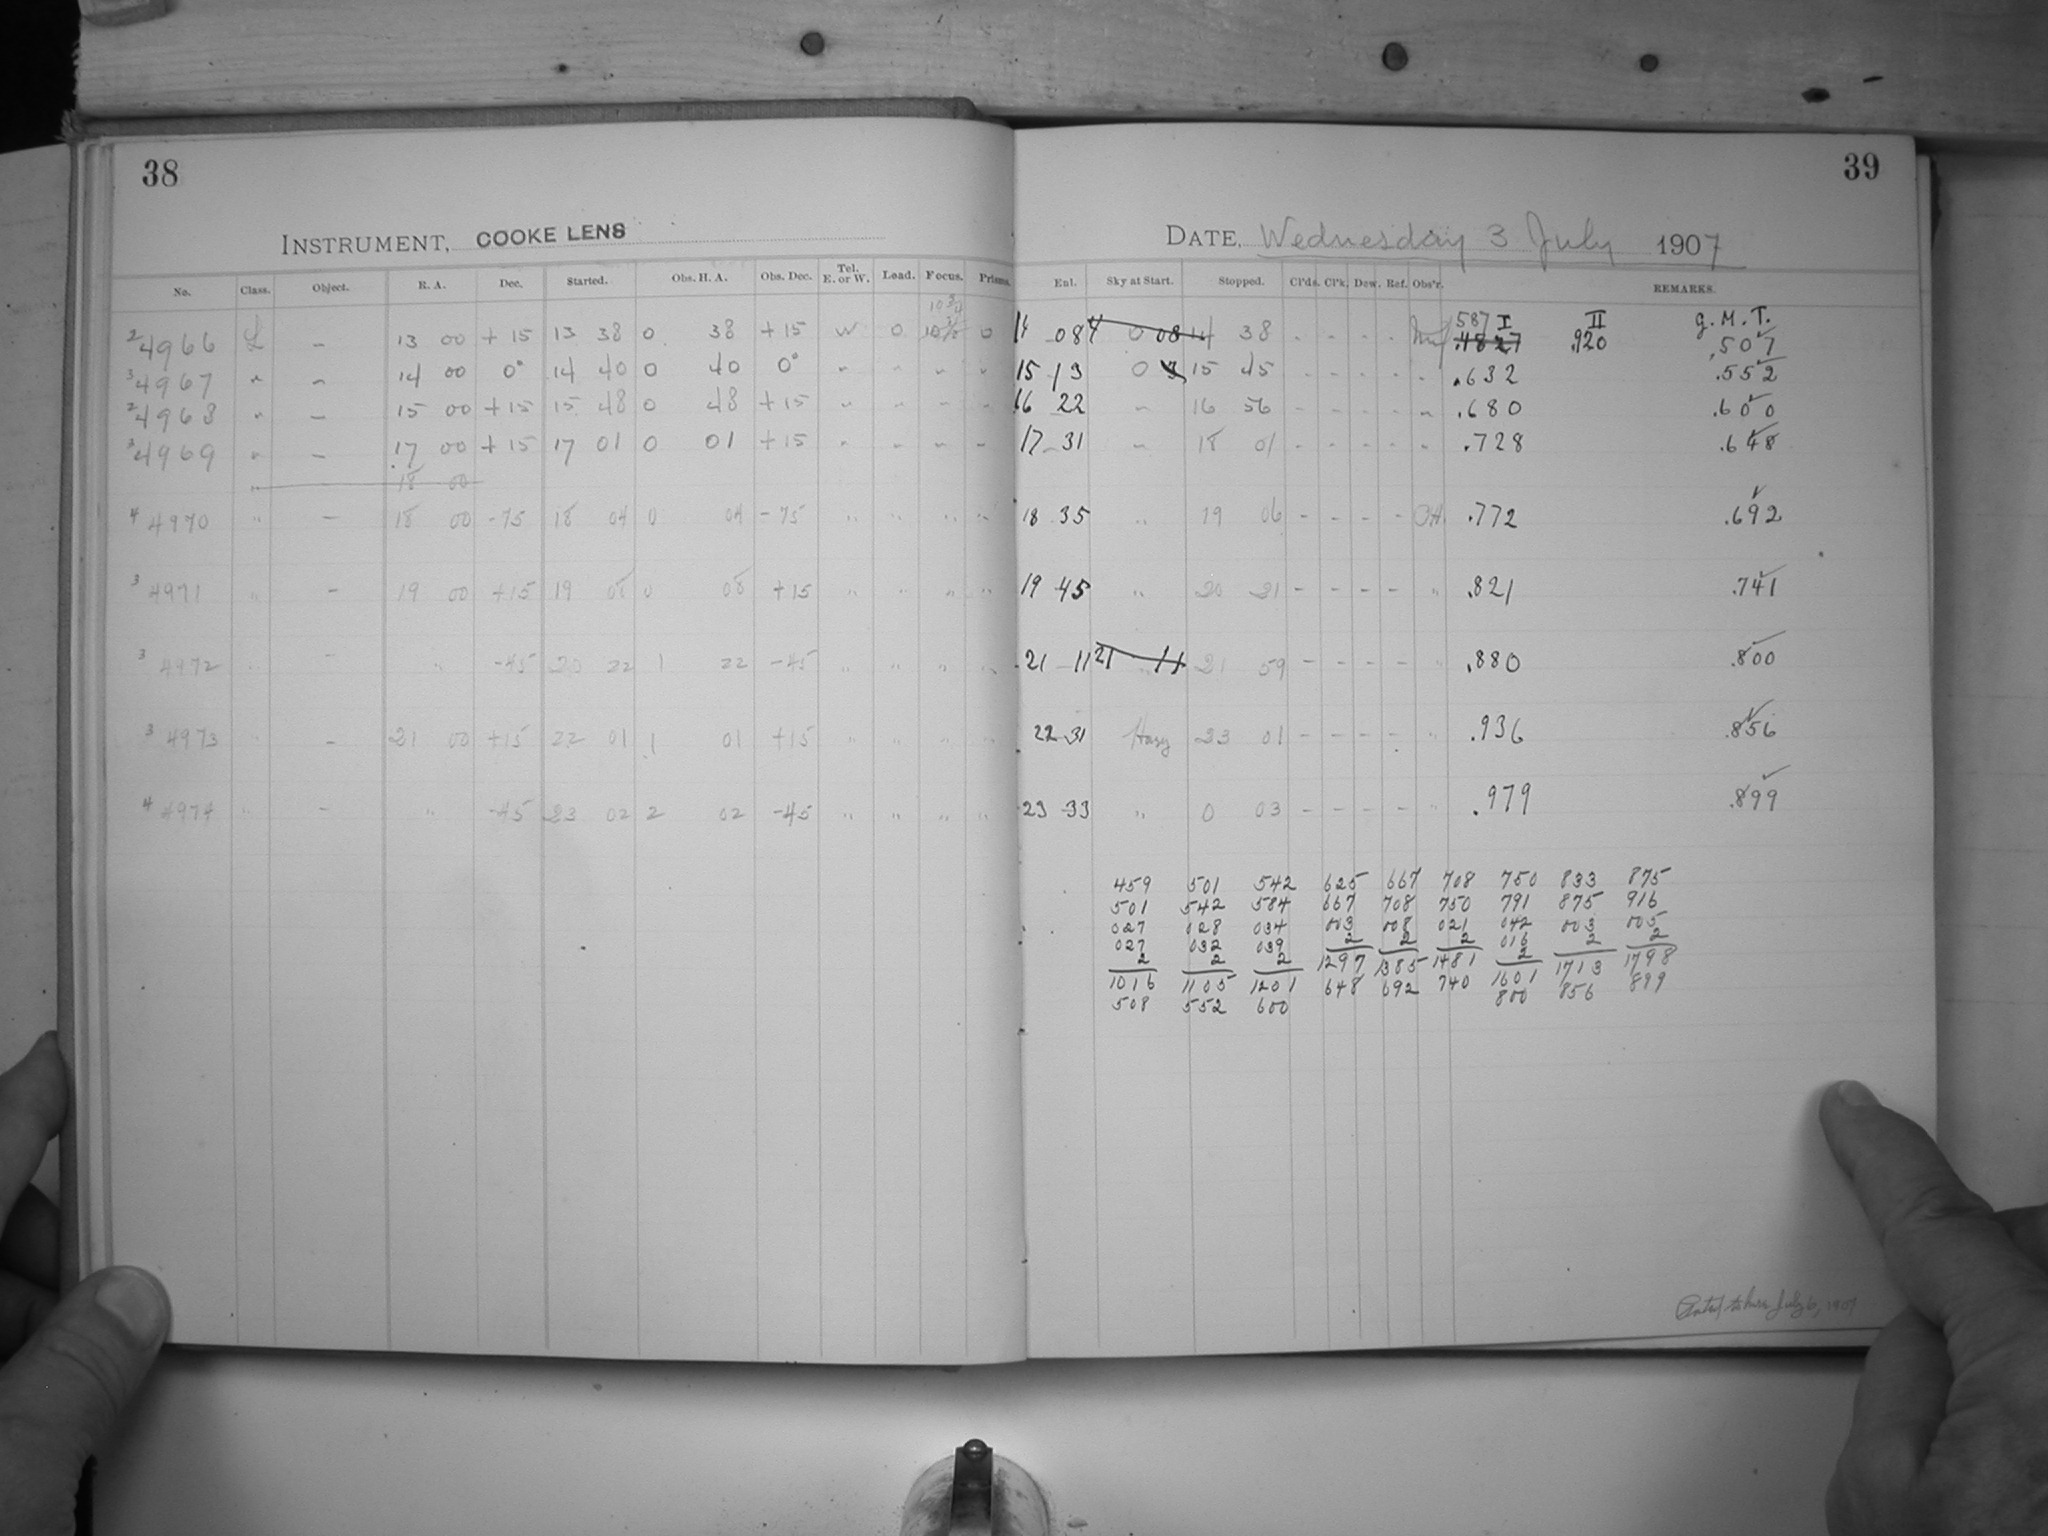 38
39
INSTRUMENT, COOKE LENS
DATE, Wednesday 3 July 1907
No. Class. Object. R. A. Dec. Started. Obs. H. A. Obs. Dec. Tel. E. or W. Load. Focus. Prisms. Enl. Sky at Start. Stopped. Cl'ds. Cl'k. Dew. Ref. Obs'r. REMARKS.
10 3/4 587 I II G. M. T.
2 4966 L – 13 00 +15 13 38 0 38 +15 W 0 0 14 08 0 08 14 38 - - - - .4827 .920 .507
3 4967 " – 14 00 0° 14 40 0 40 0° " " " " 15 13 0 15 45 - - - - " .632 .552
2 4968 " – 15 00 +15 15 48 0 48 +15 " " " " 16 22 " 16 56 - - - - " .680 .600
3 4969 " – 17 00 +15 17 01 0 01 +15 " " " " 17 31 " 18 01 - - - - " .728 .648
" 18 00
4 4970 " – 18 00 -75 18 04 0 04 -75 " " " " 18 35 " 19 06 - - - - .772 .692
3 4971 " – 19 00 +15 19 08 0 08 +15 " " " " 19 45 " 20 21 - - - - " .821 .741
3 4972 " – " -45 20 22 1 22 -45 " " " " 21 11 21 11 21 59 - - - - " .880 .800
3 4973 " – 21 00 +15 22 01 1 01 +15 " " " " 22 31 Hazy 23 01 - - - - " .936 .856
4 4974 " – " -45 23 02 2 02 -45 " " " " 23 33 " 0 03 - - - - " .979 .899
459 501 542 625 667 708 750 833 875
501 542 584 667 708 750 791 875 916
027 028 034 003 008 021 042 003 005
027 032 039 2 2 2 016 2 2
2 2 2 1297 1385 1481 2 1713 1798
1016 1105 1201 648 692 740 1601 856 899
508 552 600 800
July 6, 1907